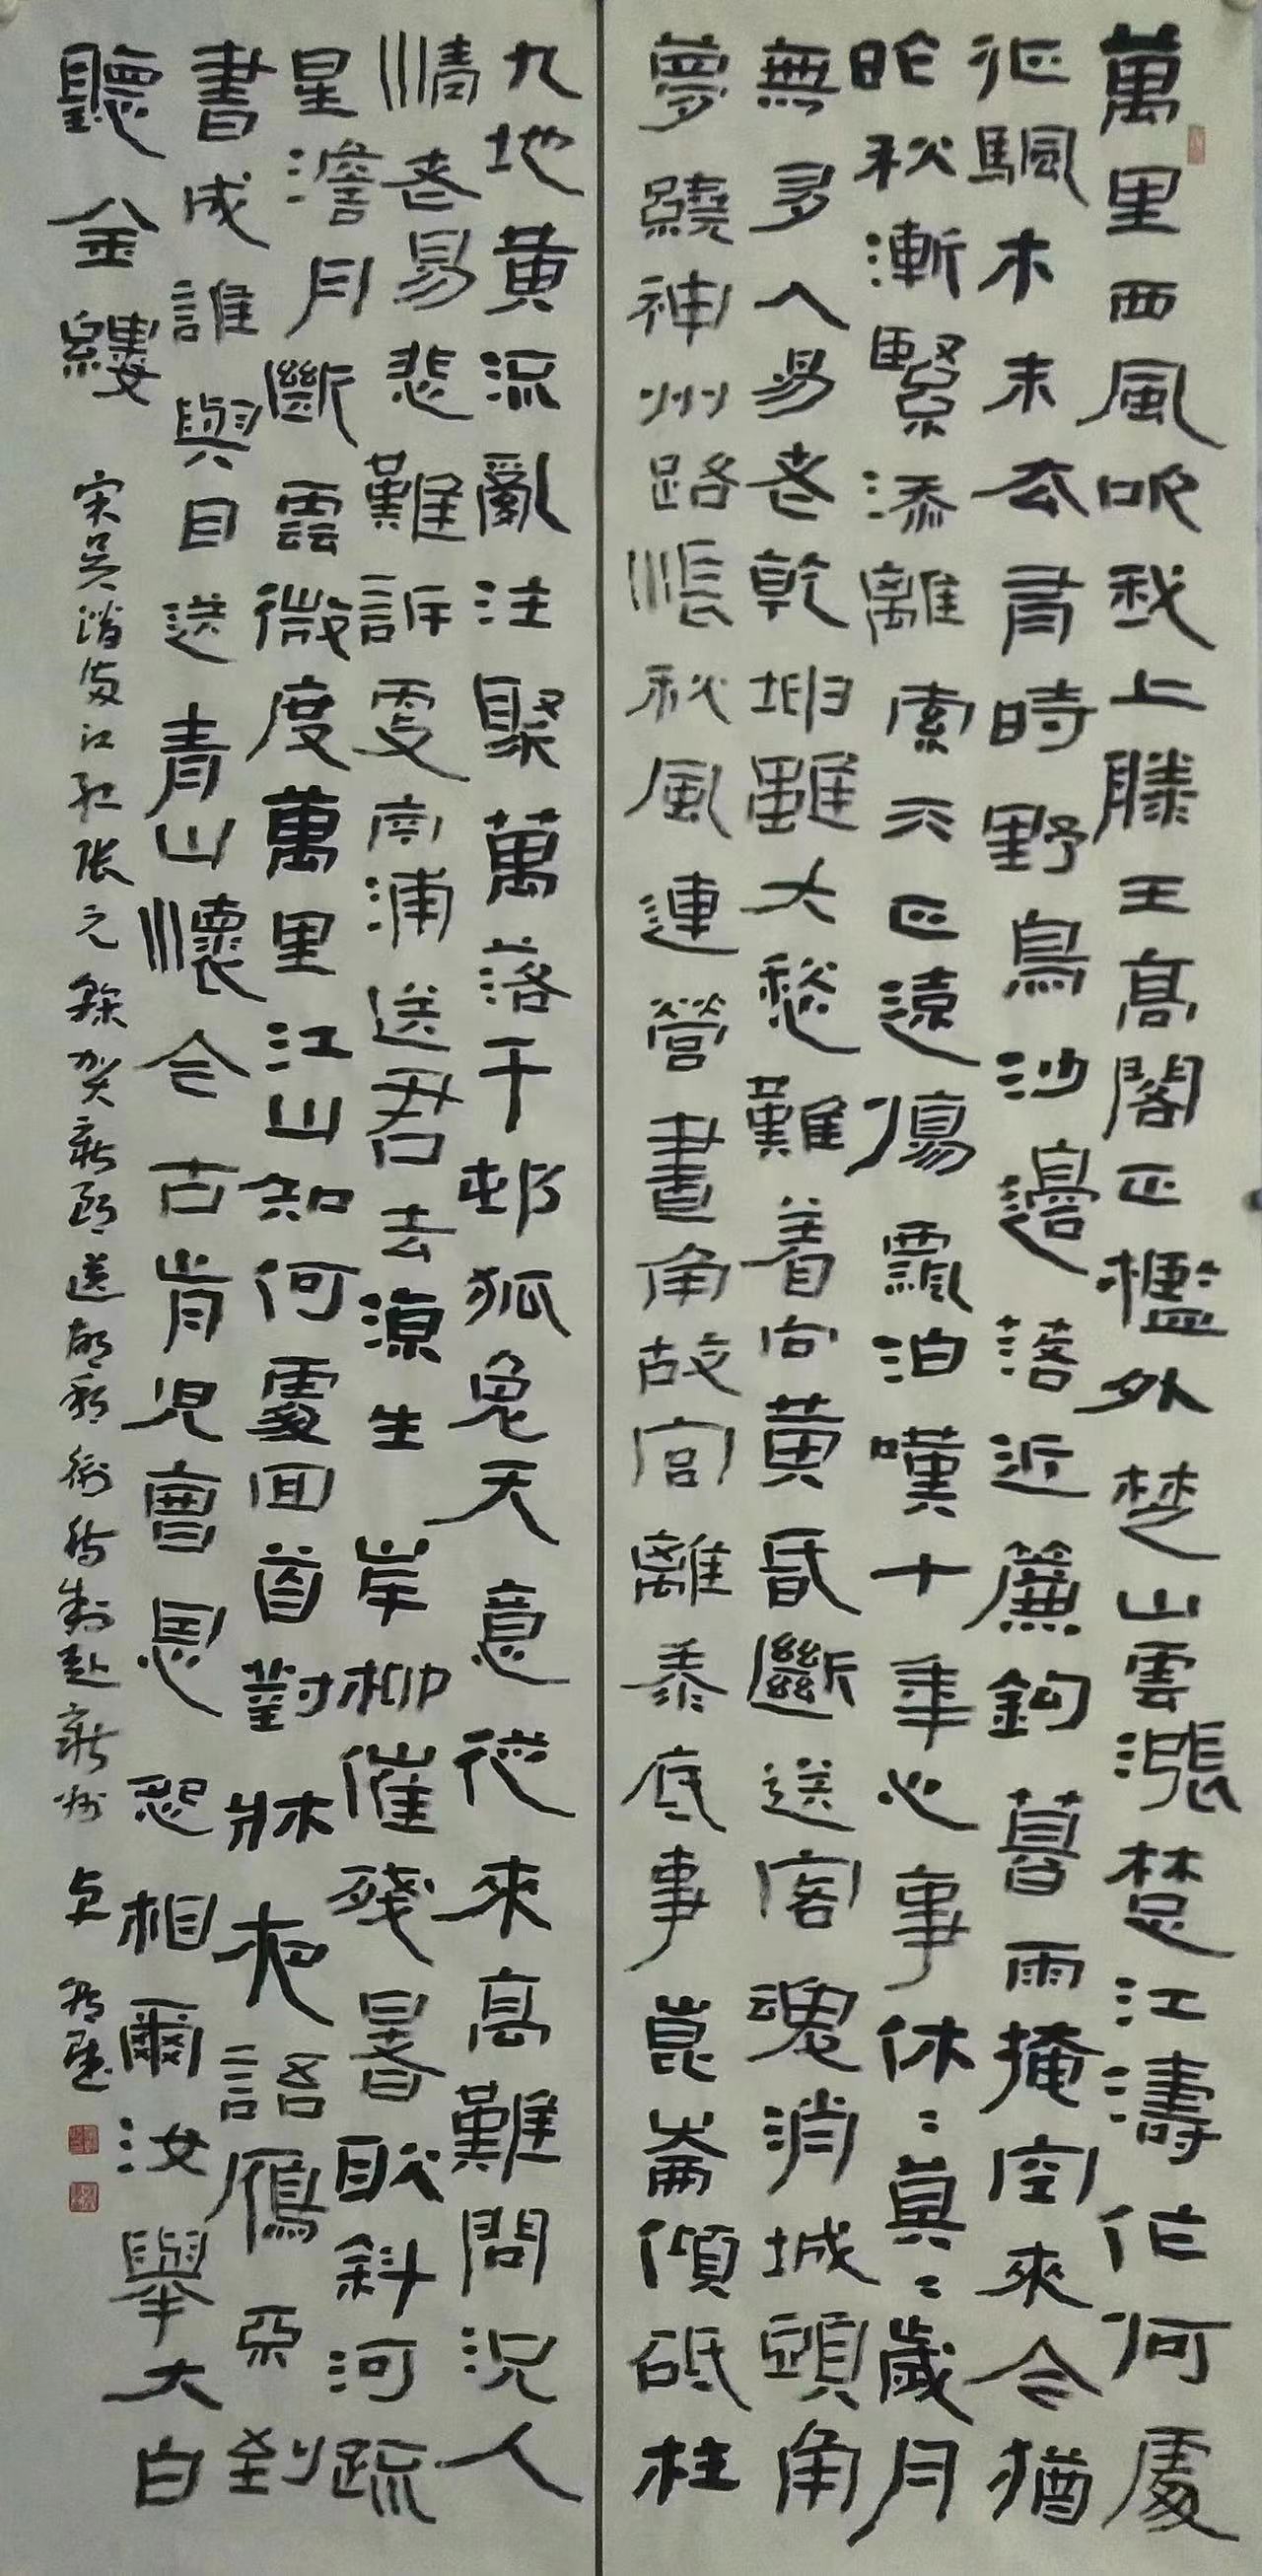 萬里西風吹我上滕王高閣正檻外楚山雲漲楚江濤作何處
征颿木末去有時野鳥沙邊落近簾鈎暮雨掩空來今猶
昨秋漸緊添離索天正遠傷飄泊嘆十年心事休〻莫〻歲月
無多人易老乾坤雖大愁難着向黃昏斷送客魂消城頭角
夢繞神州路悵秋風連營畫角故宮離黍底事崑崙傾砥柱
九地黃流亂注聚萬落千邨狐兔天意從來高難問況人
情老易悲難訴更南浦送君去涼生岸柳催殘暑耿斜河疏
星澹月斷雲微度萬里江山知何處回首對牀夜語雁不到
書成誰與目送青山懷今古肯兒曹恩怨相爾汝舉大白
聽金縷 宋吳潛滿江紅張元幹賀新郎送胡邦衡待制赴新州